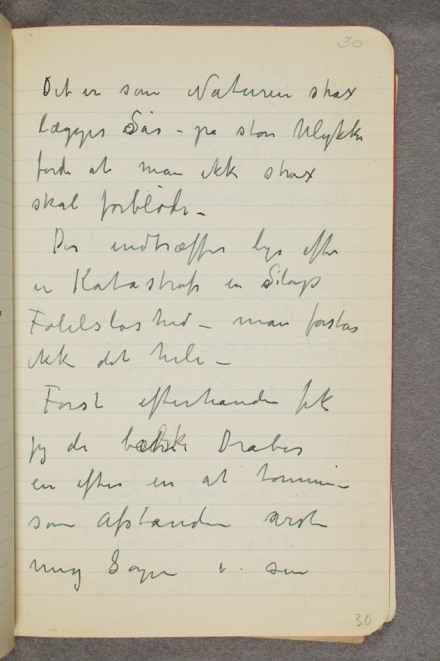 30
Det er som Naturen strax
lægger Sår – på store Ulykke
fordi at man ikke strax
skal forbløde –
Der indtræffer lige efter
en Katastrofe en Slags
Følelsløshed – man forstår
ikke det hele –
Først efterhånden fik
jeg de bedske Dråber
en efter en at tømme –
som Afstanden
mig Sagen i sin
30